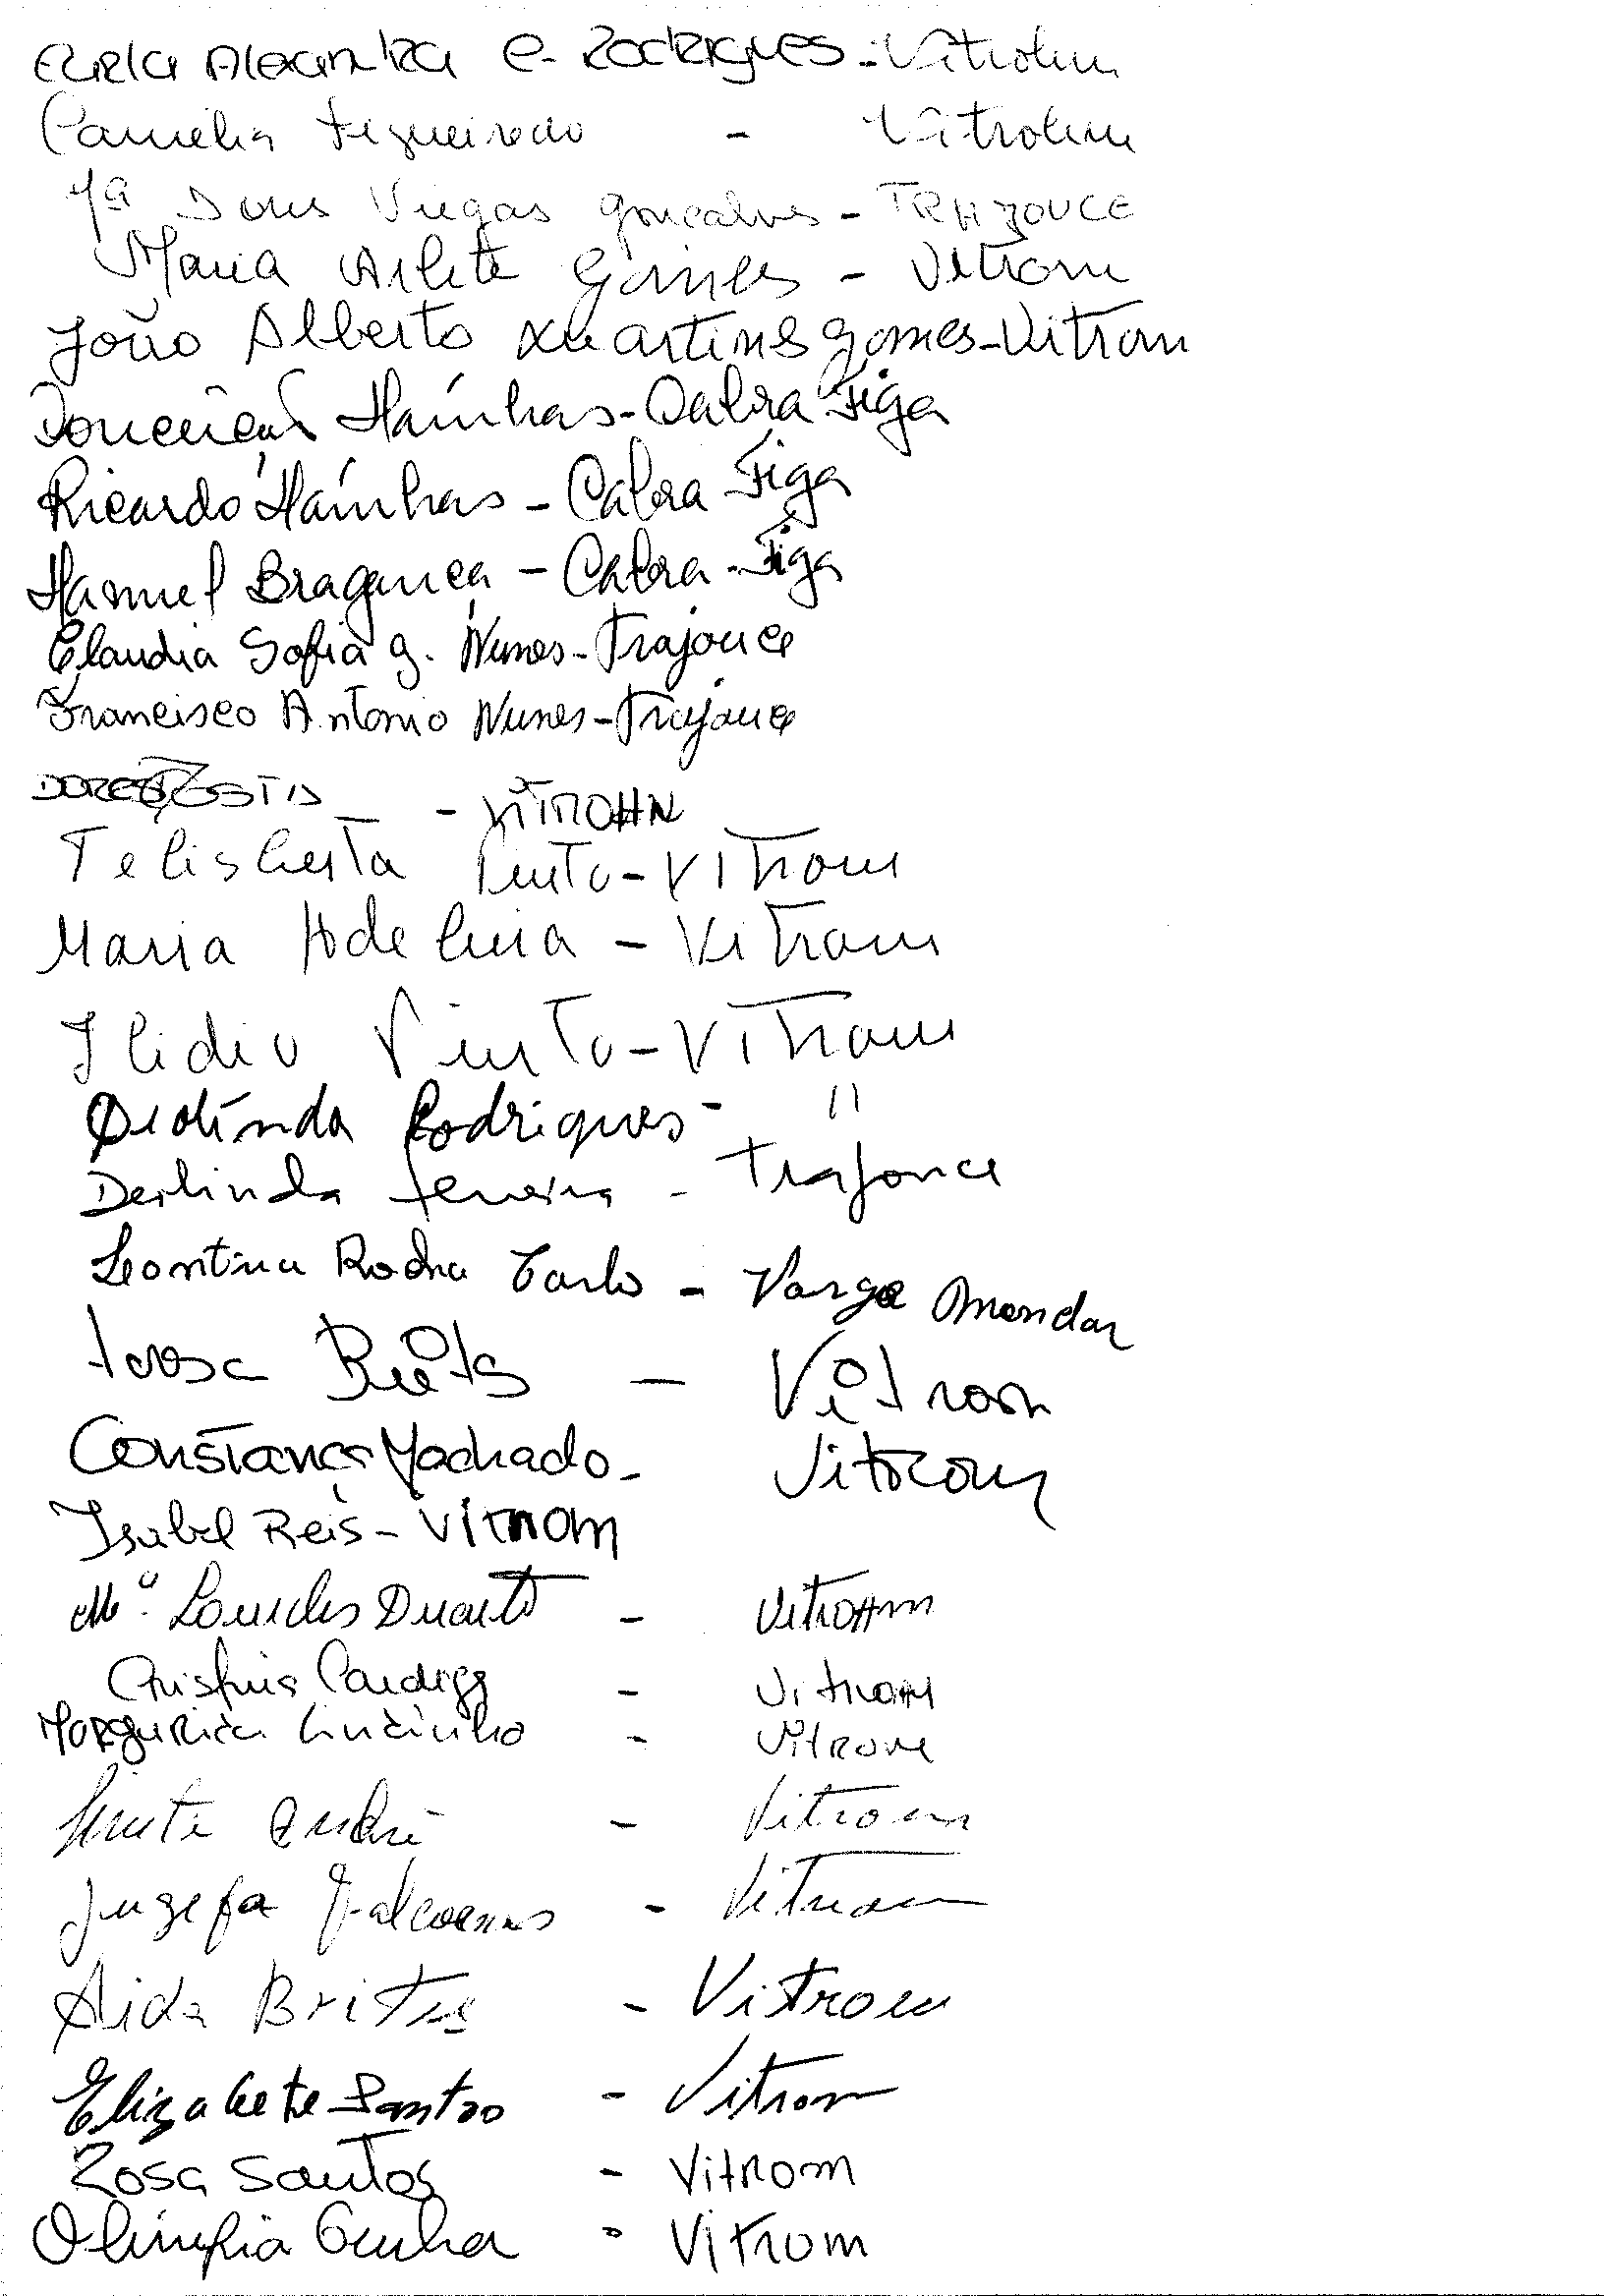 Carla Alexandra C. Rodrigues - Vitrolun
Camélia Figueiredo - Vitrolun
Mª Dores Viegas Gonçalves - TRAJOUCE
Maria Arlete Gomes - Vitrom
João Alberto Martins Gomes - Vitrom
Conceição Maínhas - Cabra Figa
Ricardo Maínhas - Cabra Figa
Manuel Bragança - Cabra-Figa
Claudia Sofia G. Nunes - Trajouce
Francisco António Nunes - Trajouce
- VITROHM
Felisberta Pinto - VITrom
Maria Adelina - VITrom
Ilidio Pinto - VITrom
Diolinda Rodrigues - "
Derlinda Ferreira - Trajouce
Leontina Rocha Carlo - Varge Mondar
- Vitrom
Constança Machado - Vitrom
Isabel Reis - Vitrom
Mª. Lourdes Duarte - VitroHm
Cardiga - Vitrom
Margarida - Vitrom
- Vitrom
Juzefa - Vitrom
Aida Brites - Vitrom
Elizabete Santos - Vitrom
Rosa Santos - Vitrom
Olimpia Cunha - Vitrom